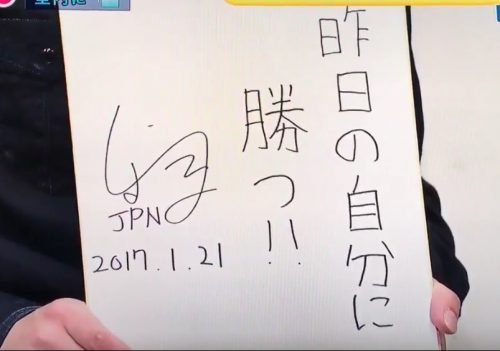 昨日の自分に
勝つ!!
JPN
2017.1.21